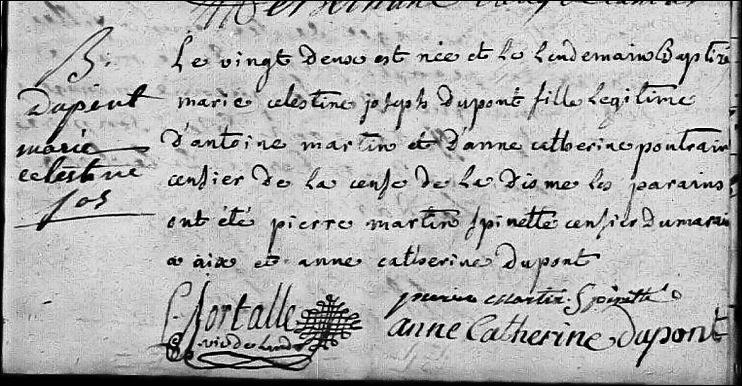 B.
Dupont
marie
celestine
jos
Le vingt deux est née et le lendemain Baptizé
marie celestine joseph dupont fille legitime
d'antoine martin et d'anne catherine pontrain
censier de la cense de la disme les parains
ont été pierre martin spinette censier du marais
a aix et anne catherine dupont
pierre martin Spinette
anne Catherine dupont